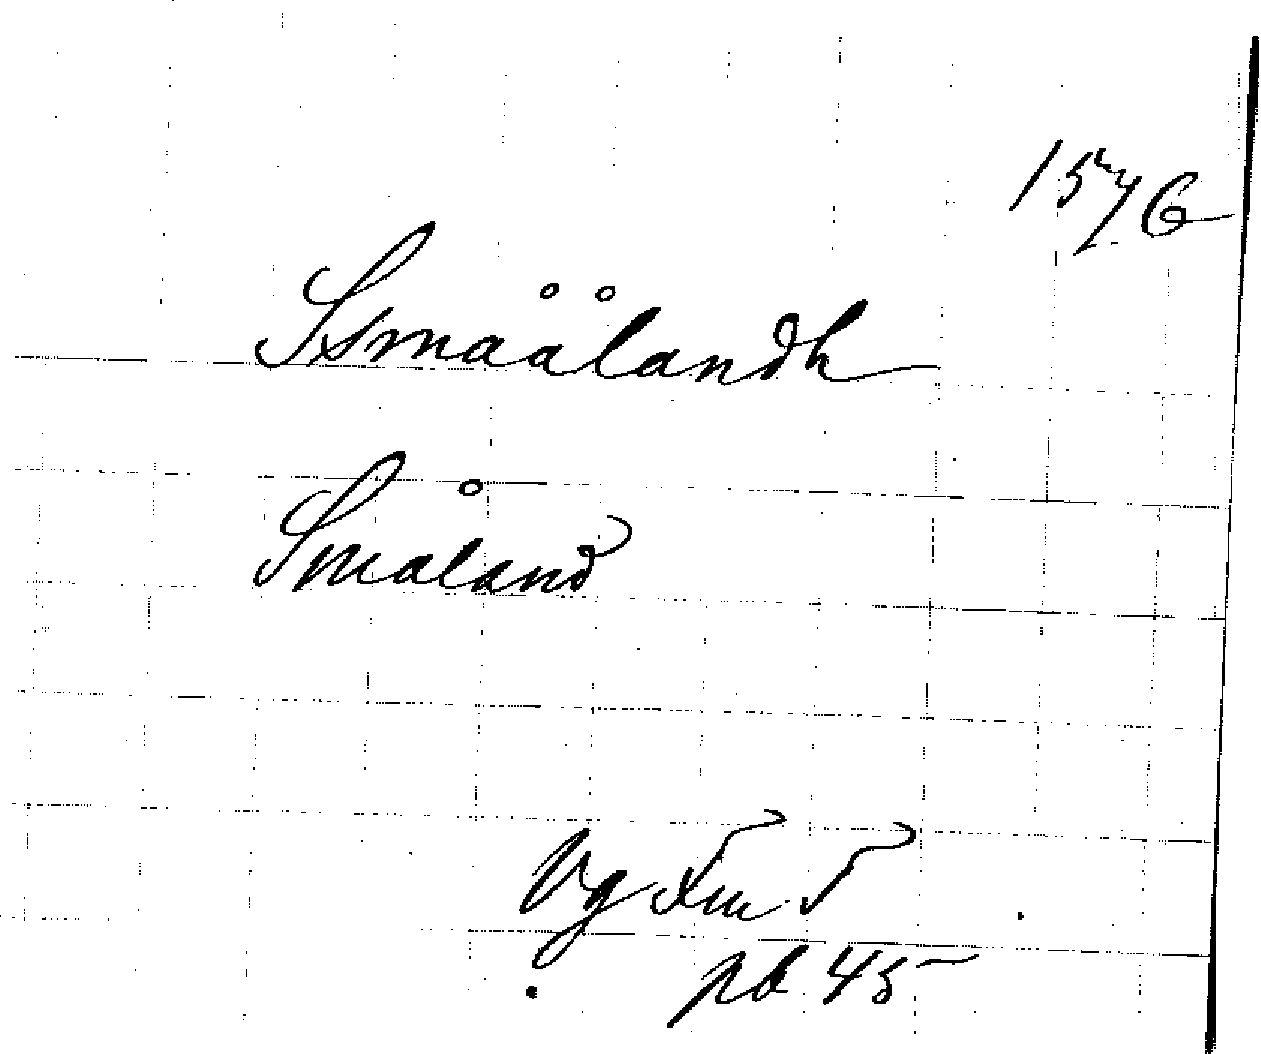 1576
Ssmåålandh
Småland
Vg
pb 45